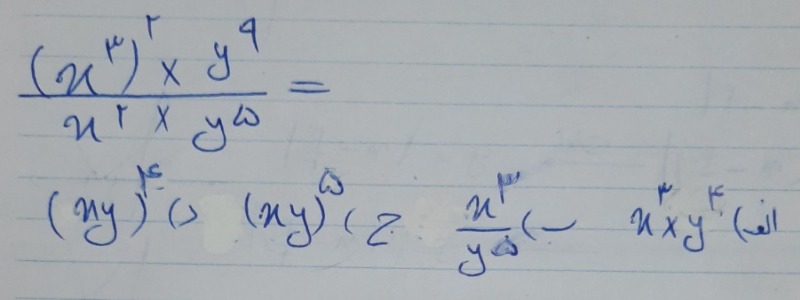 (x^۳)^۲ × y^۹
‎x^۲ × y^۵ =
الف) x^۳ × y^۴ ب) x^۳/y^۵ ج) (xy)^۵ د) (xy)^۴